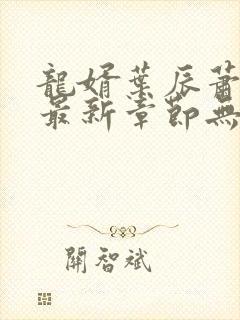 龍婿葉辰蕭
最新章節無
關智斌